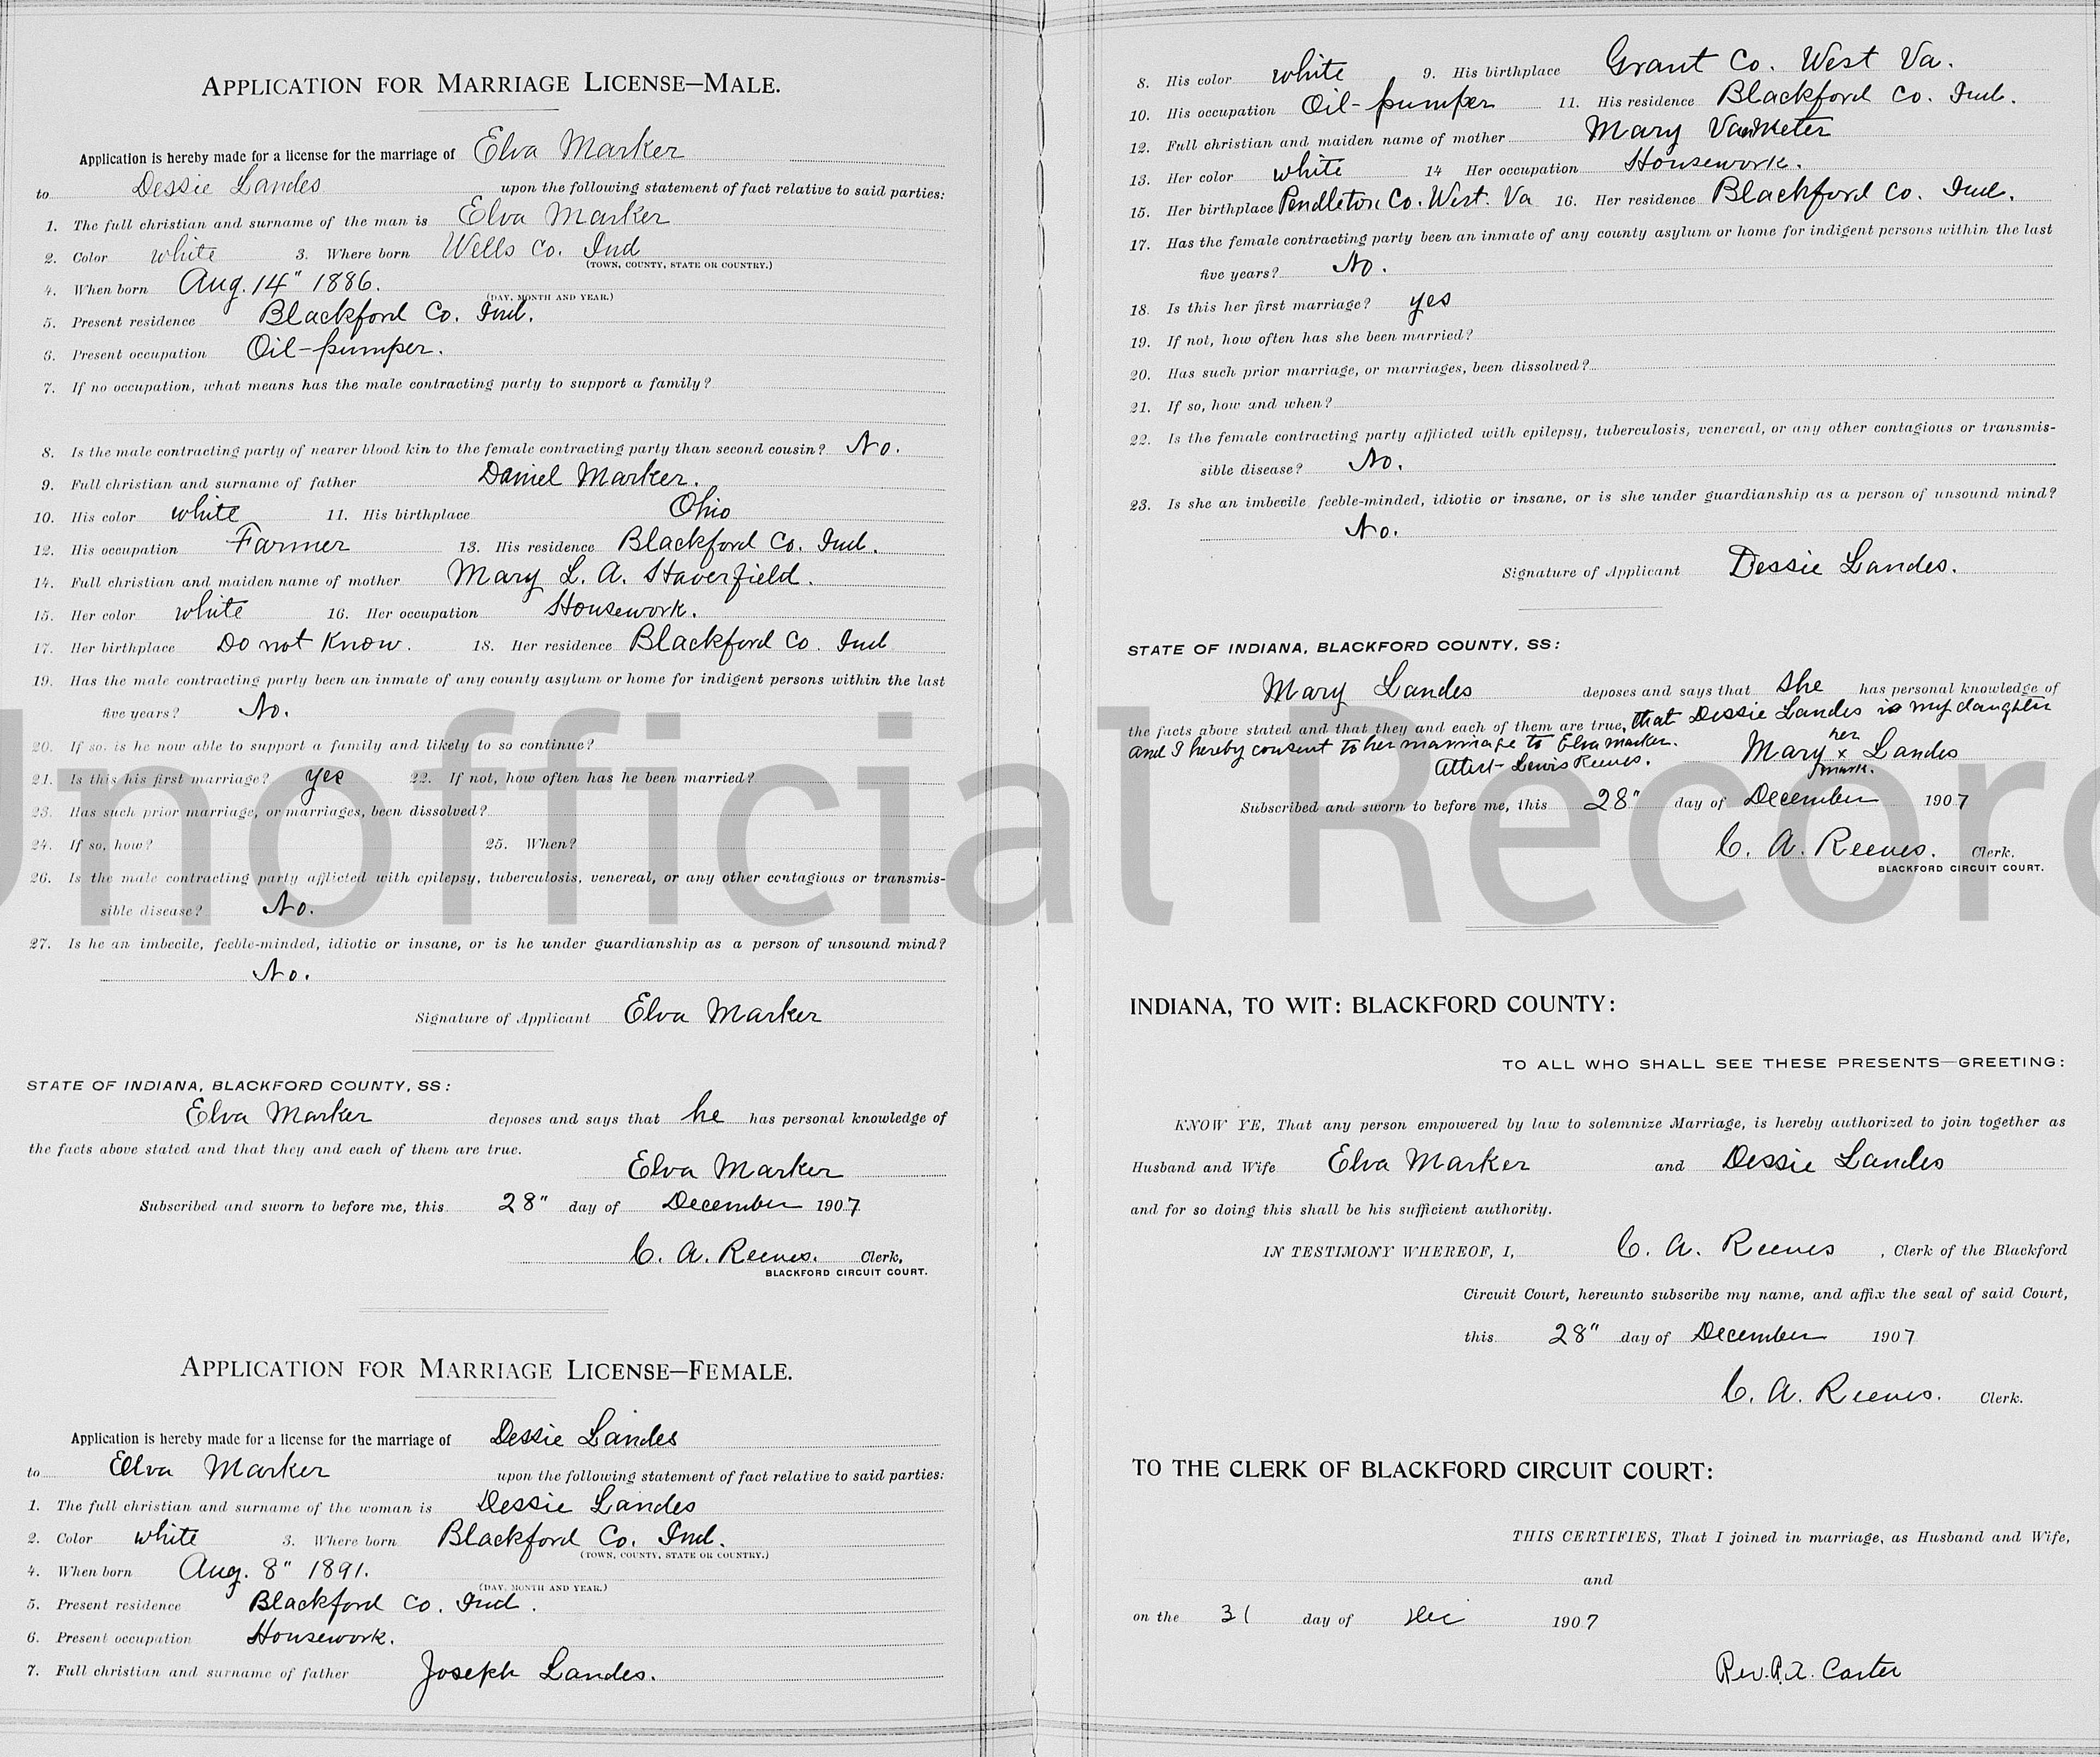 APPLICATION FOR MARRIAGE LICENSE—MALE.
Application is hereby made for a license for the marriage of Elva Marker
to Dessie Landes upon the following statement of fact relative to said parties:
1. The full christian and surname of the man is Elva Marker
2. Color white 3. Where born Wells Co. Ind
(TOWN, COUNTY, STATE OR COUNTRY.)
4. When born Aug. 14" 1886.
(DAY, MONTH AND YEAR.)
5. Present residence Blackford Co. Ind.
6. Present occupation Oil-pumper.
7. If no occupation, what means has the male contracting party to support a family?
8. Is the male contracting party of nearer blood kin to the female contracting party than second cousin? No.
9. Full christian and surname of father Daniel Marker.
10. His color white 11. His birthplace Ohio
12. His occupation Farmer 13. His residence Blackford Co. Ind.
14. Full christian and maiden name of mother Mary L. A. Haverfield.
15. Her color white 16. Her occupation Housework.
17. Her birthplace Do not Know. 18. Her residence Blackford Co. Ind
19. Has the male contracting party been an inmate of any county asylum or home for indigent persons within the last
five years? No.
20. If so, is he now able to support a family and likely to so continue?
21. Is this his first marriage? yes 22. If not, how often has he been married?
23. Has such prior marriage, or marriages, been dissolved?
24. If so, how? 25. When?
26. Is the male contracting party afflicted with epilepsy, tuberculosis, venereal, or any other contagious or transmis-
sible disease? No.
27. Is he an imbecile, feeble-minded, idiotic or insane, or is he under guardianship as a person of unsound mind?
No.
Signature of Applicant Elva Marker
STATE OF INDIANA, BLACKFORD COUNTY, SS:
Elva Marker deposes and says that he has personal knowledge of
the facts above stated and that they and each of them are true.
Elva Marker
Subscribed and sworn to before me, this 28" day of December 1907
C. A. Reeves. Clerk,
BLACKFORD CIRCUIT COURT.
APPLICATION FOR MARRIAGE LICENSE—FEMALE.
Application is hereby made for a license for the marriage of Dessie Landes
to Elva Marker upon the following statement of fact relative to said parties:
1. The full christian and surname of the woman is Dessie Landes
2. Color white 3. Where born Blackford Co. Ind.
(TOWN, COUNTY, STATE OR COUNTRY.)
4. When born Aug. 8" 1891.
(DAY, MONTH AND YEAR)
5. Present residence Blackford Co. Ind.
6. Present occupation Housework.
7. Full christian and surname of father Joseph Landes.
8. His color white 9. His birthplace Grant Co. West Va.
10. His occupation Oil-pumper 11. His residence Blackford Co. Ind.
12. Full christian and maiden name of mother Mary VanMeter
13. Her color white 14 Her occupation Housework.
15. Her birthplace Pendleton Co. West. Va 16. Her residence Blackford Co. Ind.
17. Has the female contracting party been an inmate of any county asylum or home for indigent persons within the last
five years? No.
18. Is this her first marriage? yes
19. If not, how often has she been married?
20. Has such prior marriage, or marriages, been dissolved?
21. If so, how and when?
22. Is the female contracting party afflicted with epilepsy, tuberculosis, venereal, or any other contagious or transmis-
sible disease? No.
23. Is she an imbecile feeble-minded, idiotic or insane, or is she under guardianship as a person of unsound mind?
No.
Signature of Applicant Dessie Landes.
STATE OF INDIANA, BLACKFORD COUNTY, SS:
Mary Landes deposes and says that she has personal knowledge of
the facts above stated and that they and each of them are true, that Dessie Landes is my daughter
and I hereby consent to her marriage to Elva Marker. Mary her x Landes
Attest Lewis Reeves. mark.
Subscribed and sworn to before me, this 28" day of December 1907
C. A. Reeves. Clerk.
BLACKFORD CIRCUIT COURT.
INDIANA, TO WIT: BLACKFORD COUNTY:
TO ALL WHO SHALL SEE THESE PRESENTS—GREETING:
KNOW YE, That any person empowered by law to solemnize Marriage, is hereby authorized to join together as
Husband and Wife Elva Marker and Dessie Landes
and for so doing this shall be his sufficient authority.
IN TESTIMONY WHEREOF, I, C. A. Reeves, Clerk of the Blackford
Circuit Court, hereunto subscribe my name, and affix the seal of said Court,
this 28" day of December 1907
C. A. Reeves. Clerk.
TO THE CLERK OF BLACKFORD CIRCUIT COURT:
THIS CERTIFIES, That I joined in marriage, as Husband and Wife,
and
on the 31 day of Dec 1907
Rev. R. A. Carter
Unofficial Record